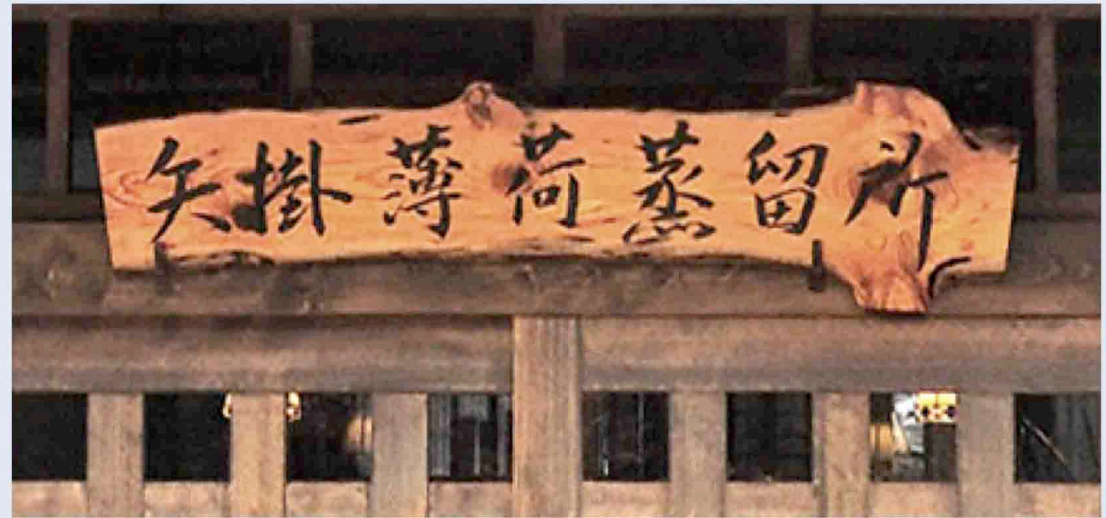 矢掛薄荷蒸留所